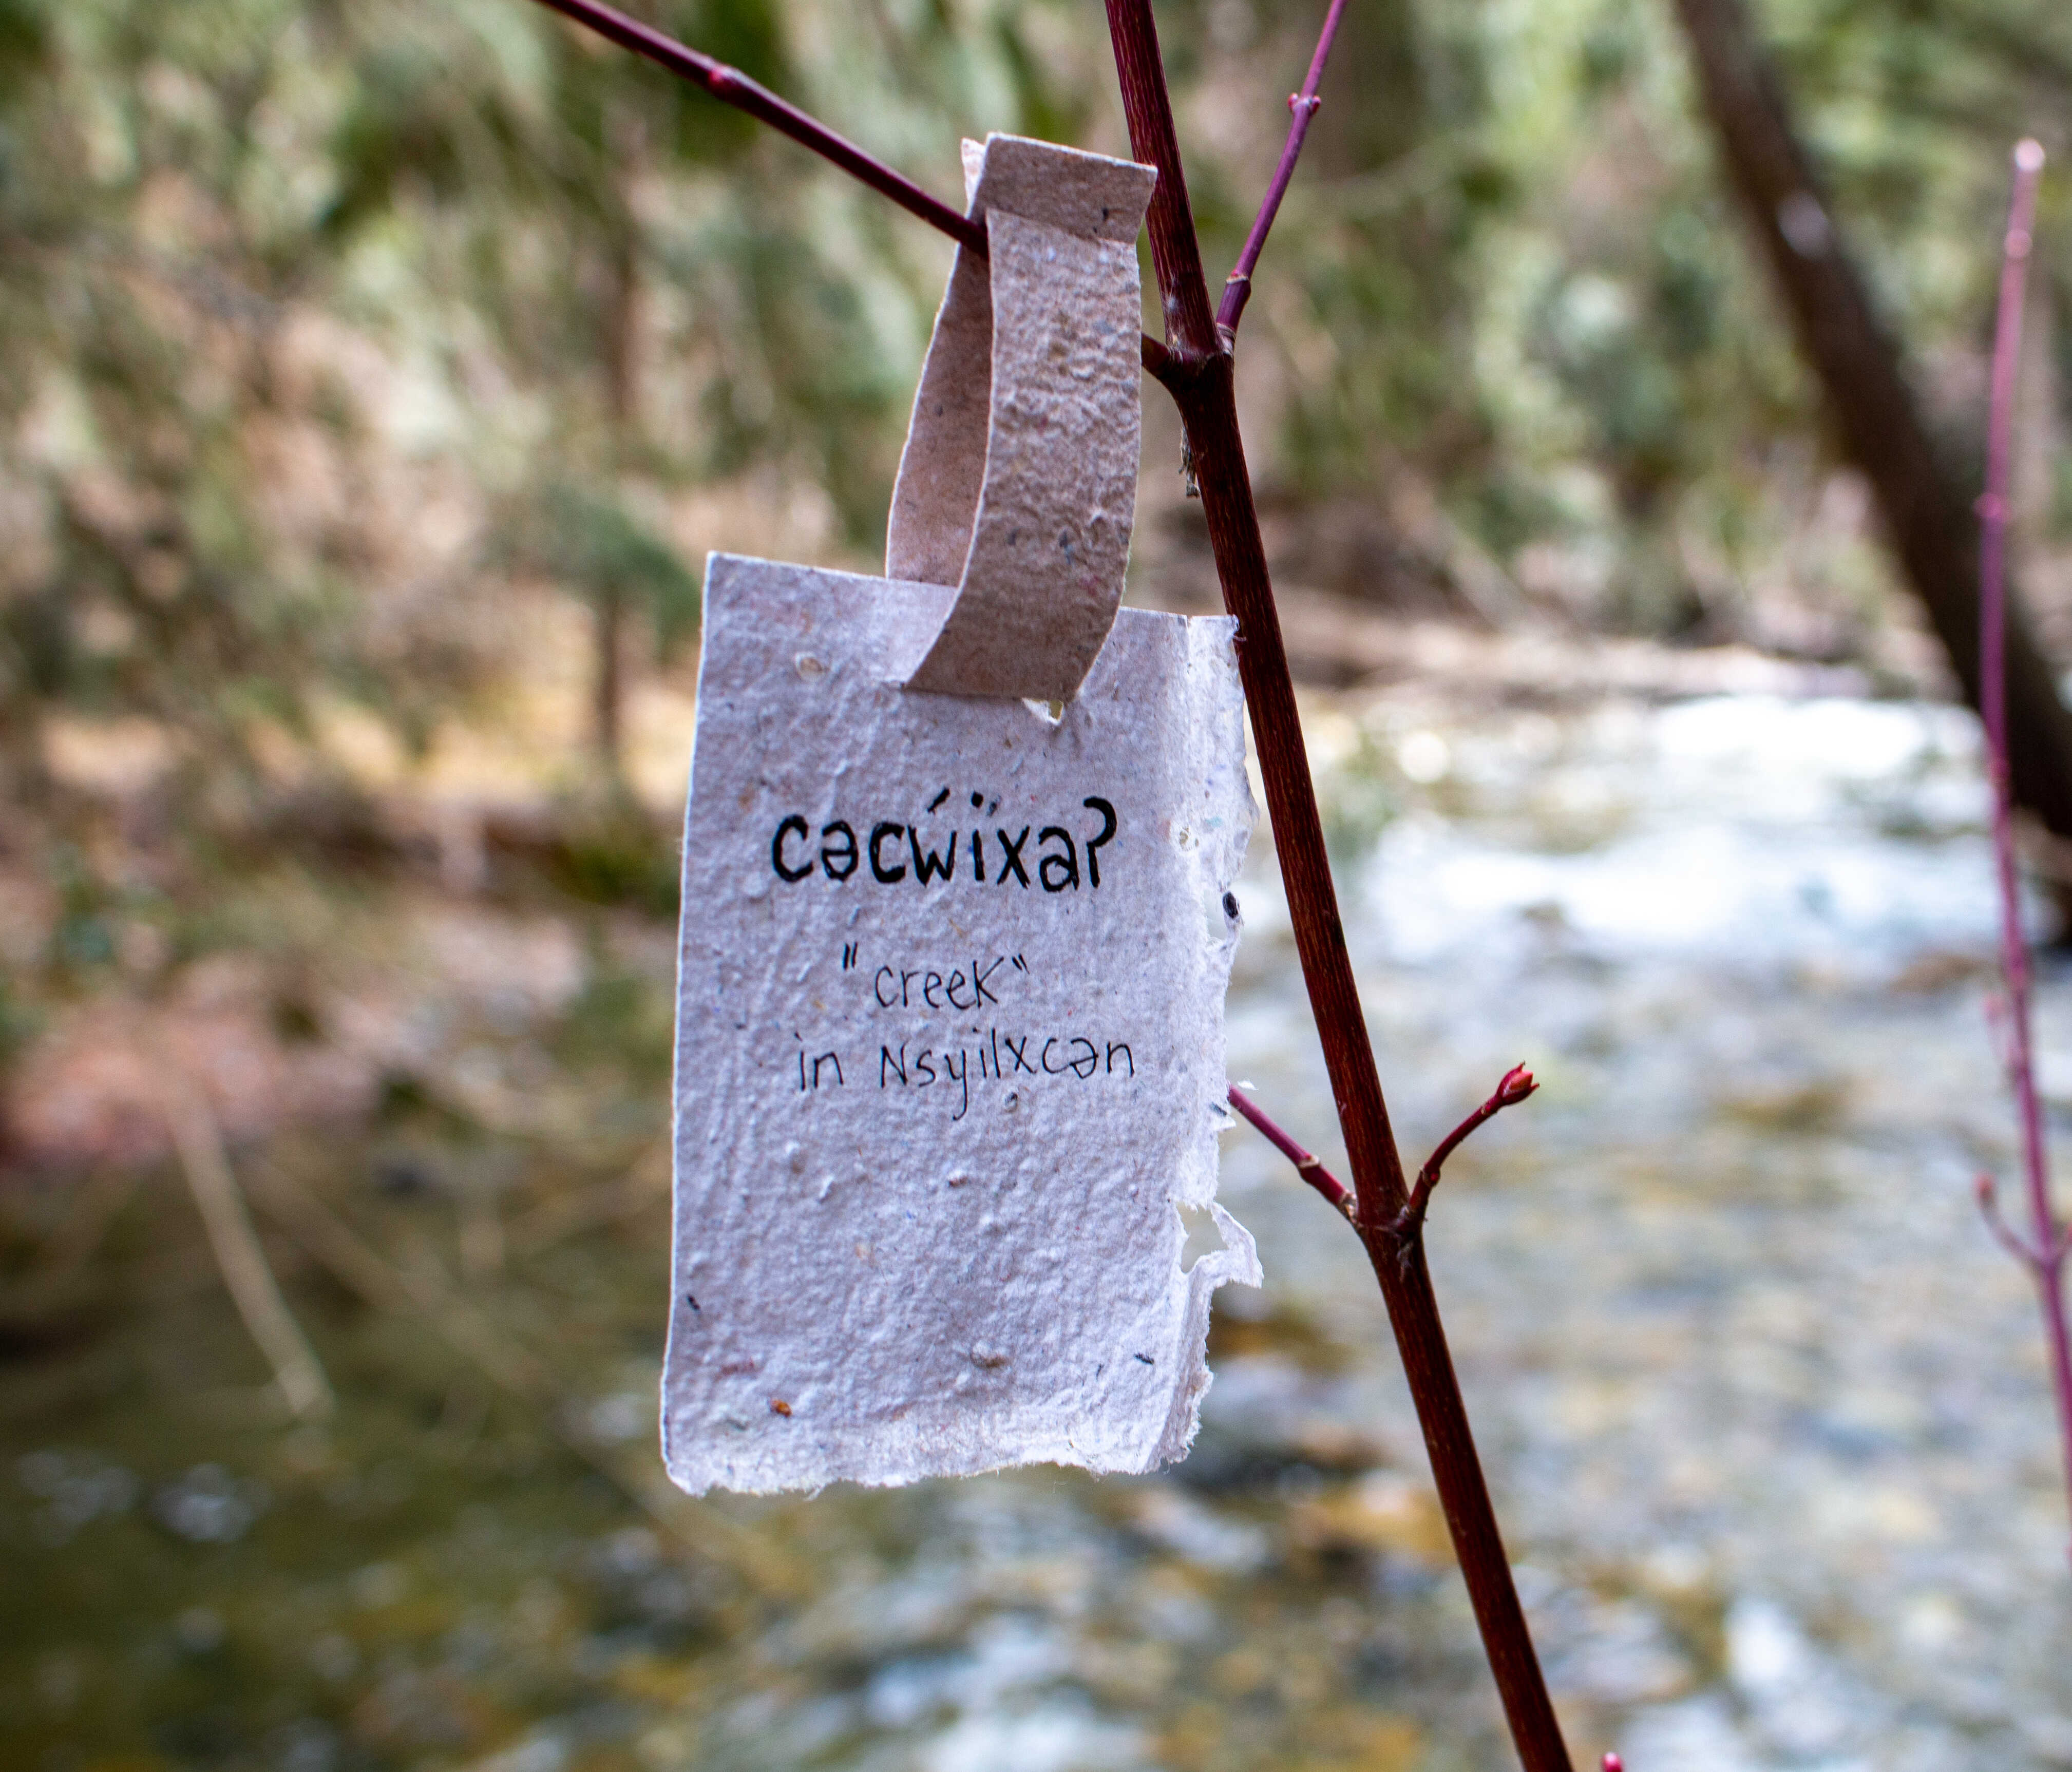 cəcẃïxaʔ
"creek"
in Nsyilxcən